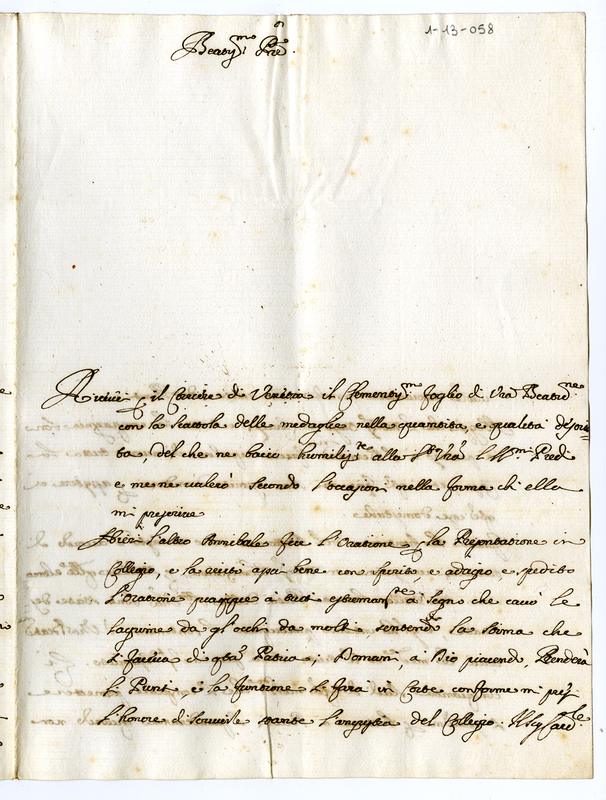 1-13-058
Beatiss.mo Pre.
Ricevei p il Corriere di Venetia il Clementiss.mo foglio di V.ra Beatud.ne
con la scattola delle medaglie nella quantità, e qualità
ta, del che ne bacio humiliss.te alla S.tà V.ra i SS.mi Piedi
e me ne valerò secondo l'occasioni nella forma ch'ella
mi prescrive
l'altro Annibale fece l'Oratione p la in
Collegio, e la recitò assai bene con spirito, e adagio, e
l'Oratione piacque à tutti estremam.te à segno che cavò le
lagrime da gl'occhi da molti sentendo la stima che
si faceva di q.sta Patria; Domani, à Dio piacendo, Prenderà
li Punti, e la funtione si farà in Corte conforme mi
l'honore di scriverle stante l'angustia del Collegio. Il Sig. Card.le